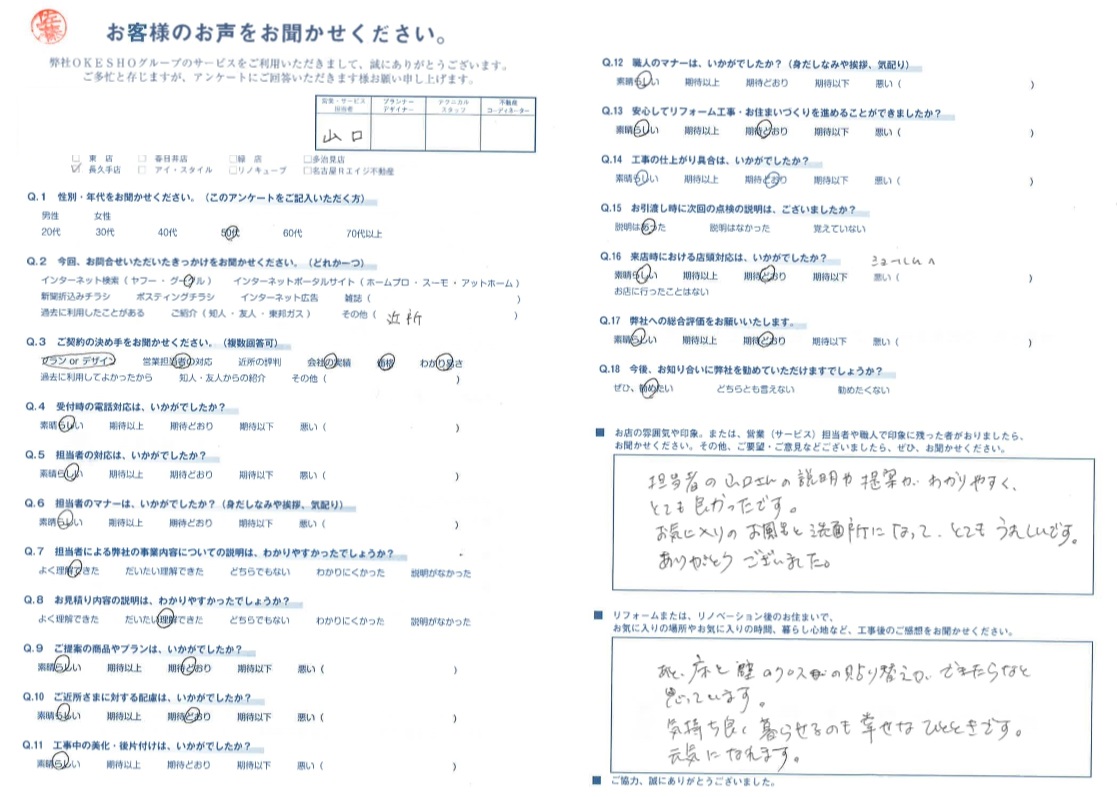 佐藤
お客様のお声をお聞かせください。
弊社OKESHOグループのサービスをご利用いただきまして、誠にありがとうございます。
ご多忙と存じますが、アンケートにご回答いただきます様お願い申し上げます。
営業・サービス担当者 プランナーデザイナー テクニカルスタッフ 不動産コーディネーター
山口
□ 東 店 □ 春日井店 □緑 店 □多治見店
☑ 長久手店 □ アイ・スタイル □リノキューブ □名古屋Rエイジ不動産
Q.1 性別・年代をお聞かせください。（このアンケートをご記入いただく方）
男性 女性
20代 30代 40代 50代 60代 70代以上
Q.2 今回、お問合せいただいたきっかけをお聞かせください。（どれか一つ）
インターネット検索（ ヤフー ・ グーグル ） インターネットポータルサイト（ ホームプロ ・ スーモ ・ アットホーム ）
新聞折込みチラシ ポスティングチラシ インターネット広告 雑誌（ ）
過去に利用したことがある ご紹介（ 知人 ・ 友人 ・ 東邦ガス ） その他（ 近所 ）
Q.3 ご契約の決め手をお聞かせください。（複数回答可）
プラン or デザイン 営業担当者の対応 近所の評判 会社の実績 価格 わかり易さ
過去に利用してよかったから 知人・友人からの紹介 その他（ ）
Q.4 受付時の電話対応は、いかがでしたか？
素晴らしい 期待以上 期待どおり 期待以下 悪い（ ）
Q.5 担当者の対応は、いかがでしたか？
素晴らしい 期待以上 期待どおり 期待以下 悪い（ ）
Q.6 担当者のマナーは、いかがでしたか？（身だしなみや挨拶、気配り）
素晴らしい 期待以上 期待どおり 期待以下 悪い（ ）
Q.7 担当者による弊社の事業内容についての説明は、わかりやすかったでしょうか？
よく理解できた だいたい理解できた どちらでもない わかりにくかった 説明がなかった
Q.8 お見積り内容の説明は、わかりやすかったでしょうか？
よく理解できた だいたい理解できた どちらでもない わかりにくかった 説明がなかった
Q.9 ご提案の商品やプランは、いかがでしたか？
素晴らしい 期待以上 期待どおり 期待以下 悪い（ ）
Q.10 ご近所さまに対する配慮は、いかがでしたか？
素晴らしい 期待以上 期待どおり 期待以下 悪い（ ）
Q.11 工事中の美化・後片付けは、いかがでしたか？
素晴らしい 期待以上 期待どおり 期待以下 悪い（ ）
Q.12 職人のマナーは、いかがでしたか？（身だしなみや挨拶、気配り）
素晴らしい 期待以上 期待どおり 期待以下 悪い（ ）
Q.13 安心してリフォーム工事・お住まいづくりを進めることができましたか？
素晴らしい 期待以上 期待どおり 期待以下 悪い（ ）
Q.14 工事の仕上がり具合は、いかがでしたか？
素晴らしい 期待以上 期待どおり 期待以下 悪い（ ）
Q.15 お引渡し時に次回の点検の説明は、ございましたか？
説明はあった 説明はなかった 覚えていない
Q.16 来店時における店頭対応は、いかがでしたか？
素晴らしい 期待以上 期待どおり 期待以下 悪い（ ）
お店に行ったことはない
Q.17 弊社への総合評価をお願いいたします。
素晴らしい 期待以上 期待どおり 期待以下 悪い（ ）
Q.18 今後、お知り合いに弊社を勧めていただけますでしょうか？
ぜひ、勧めたい どちらとも言えない 勧めたくない
■ お店の雰囲気や印象。または、営業（サービス）担当者や職人で印象に残った者がおりましたら、
お聞かせください。その他、ご要望・ご意見などございましたら、ぜひ、お聞かせください。
担当者の山口さんの説明や提案がわかりやすく、
とても良かったです。
お気に入りのお風呂と洗面所になって、とてもうれしいです。
ありがとうございました。
■ リフォームまたは、リノベーション後のお住まいで、
お気に入りの場所やお気に入りの時間、暮らし心地など、工事後のご感想をお聞かせください。
あと、床と壁のクロスの貼り替えができたらなと
思っています。
気持ち良く暮らせるのも幸せなひとときです。
元気になれます。
■ ご協力、誠にありがとうございました。